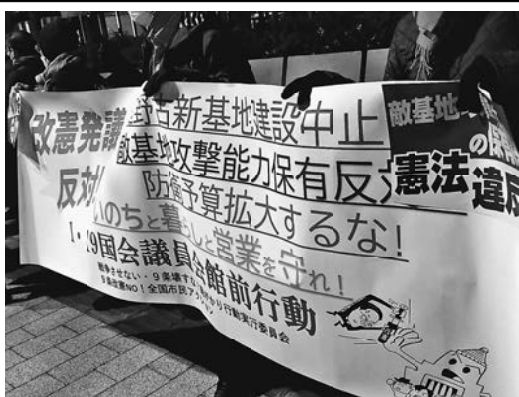 改憲発議
反対
野古新基地建設中止
敵基地攻撃能力保有反対
防衛予算拡大するな!
いのちと暮らしと営業を守れ!
1・19国会議員会館前行動
戦争させない・9条壊すな!総がかり行動実行委員会
9条改憲NO!全国市民アクション
敵基地
の保有
憲法違反